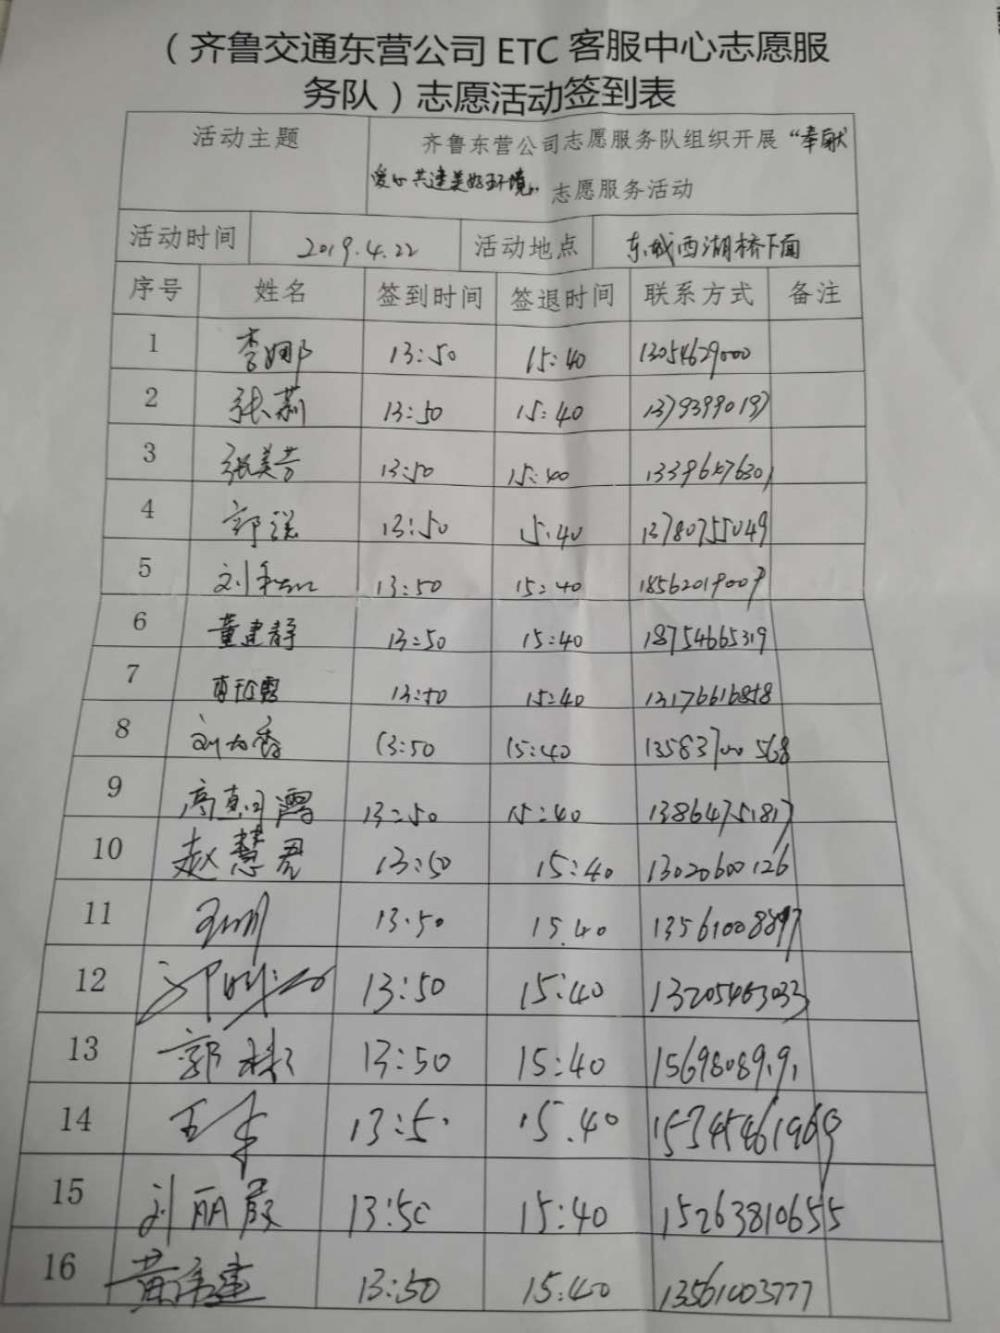 （齐鲁交通东营公司 ETC 客服中心志愿服
务队）志愿活动签到表
活动主题 齐鲁东营公司志愿服务队组织开展“奉献
爱心共建美好环境” 志愿服务活动
活动时间 2019.4.22 活动地点 东城西湖桥下面
序号 姓名 签到时间 签退时间 联系方式 备注
1 李娜 13:50 15:40 13054629000
2 张莉 13:50 15:40 13793990197
3 张美芳 13:50 15:40
4 郭 13:50 15:40 13780755049
5 刘 13:50 15:40 18562019009
6 董建静 13:50 15:40 18754665319
7 13:50 15:40 13176616858
8 刘 13:50 15:40 13583700568
9 高 霞 13:50 15:40 13864751817
10 赵慧君 13:50 15:40 13020600126
11 王 13:50 15.40 13561008897
12 13:50 15:40 13205463033
13 郭 13:50 15:40
14 王 13:5 15.40 15345461969
15 刘丽霞 13:50 15:40 15263810655
16 黄 建 13:50 15:40 13561003777